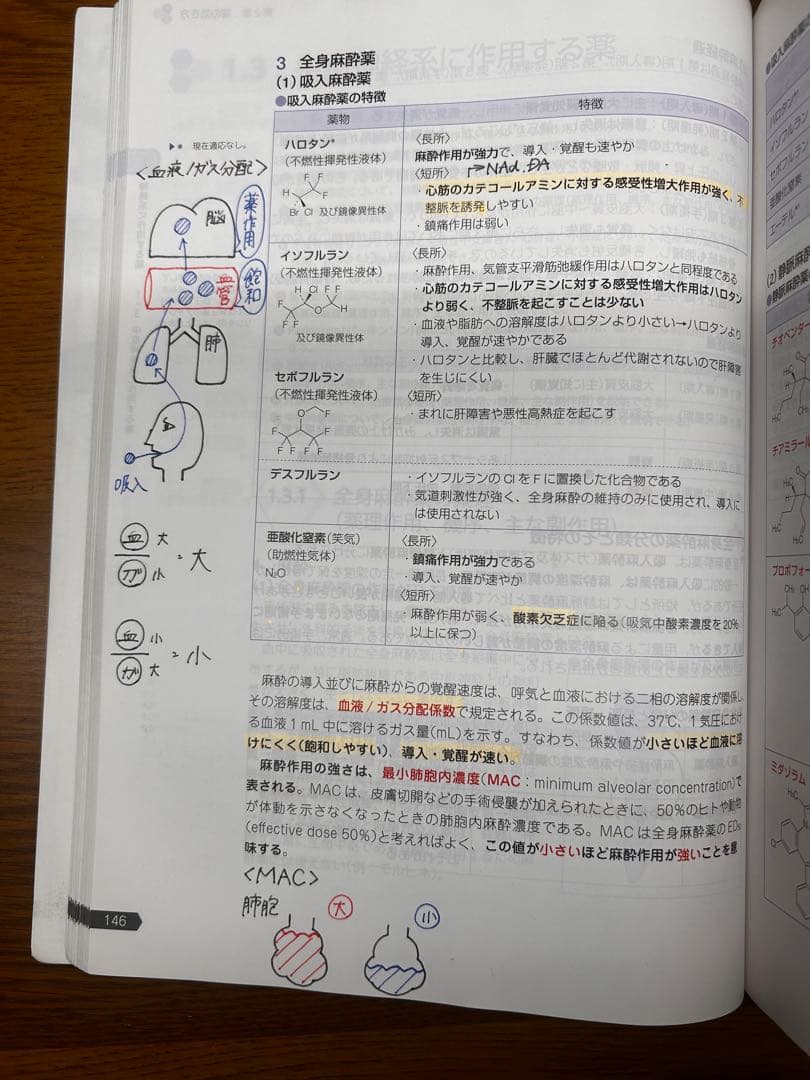 3 全身麻酔薬
(1) 吸入麻酔薬
●吸入麻酔薬の特徴
薬物
特徴
▶* 現在適応なし。
<血液/ガス分配>
脳
薬作用
血管
飽和
肺
吸入
血 大
ガ 小
= 大
血 小
ガ 大
= 小
ハロタン*
(不燃性揮発性液体)
F F
H F
Br Cl 及び鏡像異性体
〈長所〉
麻酔作用が強力で、導入・覚醒も速やか
〈短所〉 NAd, DA
・心筋のカテコールアミンに対する感受性増大作用が強く、不
整脈を誘発しやすい
・鎮痛作用は弱い
イソフルラン
(不燃性揮発性液体)
H Cl F F
F O H
F F
及び鏡像異性体
セボフルラン
(不燃性揮発性液体)
O F
F F
F F F F
〈長所〉
・麻酔作用、気管支平滑筋弛緩作用はハロタンと同程度である
・心筋のカテコールアミンに対する感受性増大作用はハロタン
より弱く、不整脈を起こすことは少ない
・血液や脂肪への溶解度はハロタンより小さい→ハロタンより
導入、覚醒が速やかである
・ハロタンと比較し、肝臓でほとんど代謝されないので肝障害
を生じにくい
〈短所〉
・まれに肝障害や悪性高熱症を起こす
デスフルラン
・イソフルランの Cl を F に置換した化合物である
・気道刺激性が強く、全身麻酔の維持のみに使用され、導入に
は使用されない
亜酸化窒素(笑気)
(助燃性気体)
N₂O
〈長所〉
・鎮痛作用が強力である
・導入、覚醒が速やか
〈短所〉
・麻酔作用が弱く、酸素欠乏症に陥る(吸気中酸素濃度を20%
以上に保つ)
麻酔の導入並びに麻酔からの覚醒速度は、呼気と血液における二相の溶解度が関係し
その溶解度は、血液/ガス分配係数で規定される。この係数値は、37℃、1 気圧におけ
る血液 1 mL 中に溶けるガス量(mL)を示す。すなわち、係数値が小さいほど血液に溶
けにくく(飽和しやすい)、導入・覚醒が速い。
麻酔作用の強さは、最小肺胞内濃度(MAC:minimum alveolar concentration)で
表される。MACは、皮膚切開などの手術侵襲が加えられたときに、50%のヒトや動物
が体動を示さなくなったときの肺胞内麻酔濃度である。MACは全身麻酔薬のED₅₀
(effective dose 50%)と考えればよく、この値が小さいほど麻酔作用が強いことを意
味する。
<MAC>
肺胞
大
小
146
●吸入麻
ハロタン*
イソフルラン
セボフルラン
亜酸化窒素
エーテル*
(2) 静脈麻酔
●静脈麻酔薬
チオペンター
チアミラール
プロポフォー
CH₃ OH
ミダゾラム